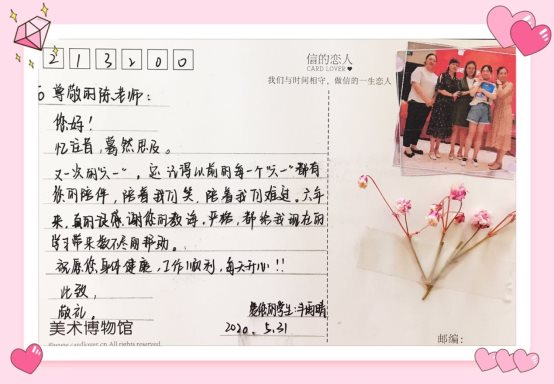 213200
信的恋人
CARD LOVER
我们与时间相守，做信的一生恋人
尊敬的陈老师：
你好！
忆往昔，蓦然思及。
又一次的"六一"，还记得以前的每一个"六一"都有
您的陪伴，陪着我们笑，陪着我们难过。六年
来，真的很感谢您的教诲，严格，都给我现在的
学习带来数不尽的帮助。
祝愿您身体健康，工作顺利，每天开心！！
此致，
敬礼。
爱您的学生：雨晴
2020.5.31
美术博物馆
cardlover.cn All rights reserved.
邮编：